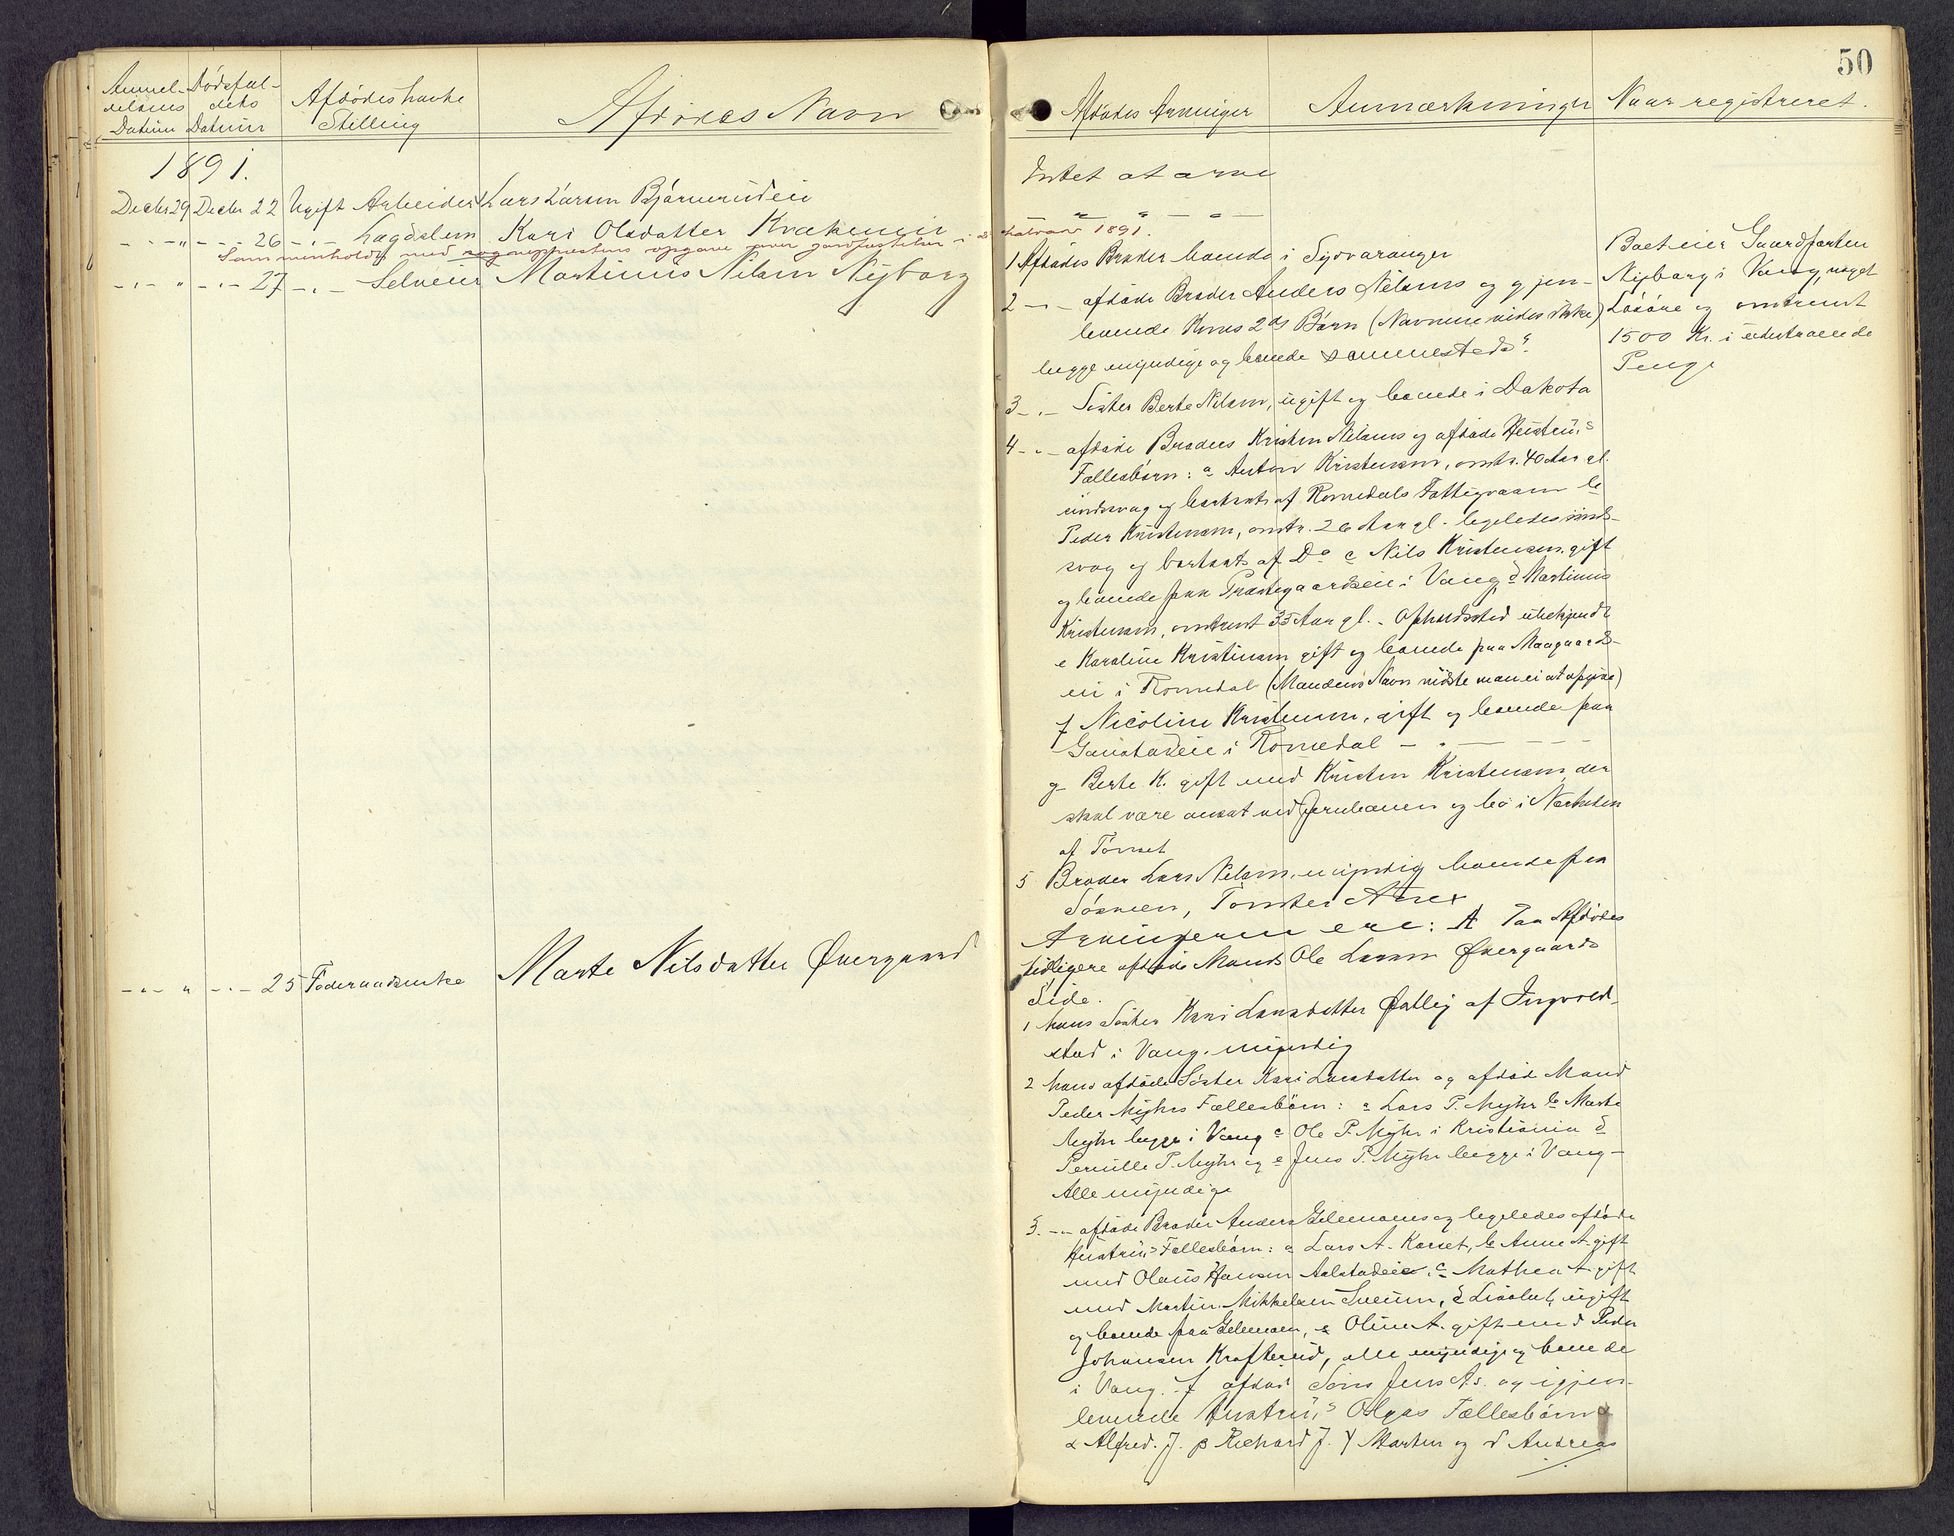 Anmel- Dødsfal-
delsens dets Afdødes havte Afdødes Navn
Datum Datum Stilling
1891.
Decbr 29 Decbr 22 Ugift Arbeider Lars Larsen Bjørnerudeie
- " - - " - 26 - " - Lægdslem Kari Olsdatter
Sammenholdt med sogneprestens opgave over jordfæstelser i 2
- " - " - " - 27 - " - Selveier Martinus Nilsen Nyborg
- " - " - " - 25 Føderaadsenke Marte Nilsdatter Øvergaard
50
Afdødes Arvinger Anmærkninger Naar registreret.
Intet at arve
- " - " - " -
halvaar 1891.
1 Afdødes Broder boende i Sydvaranger
2 - " - afdøde Broder Anders Nilsens og gjen-
levende Kones 2de Børn (Navnene vides ikke)
begge myndige og boende sammesteds.
3 - " - Søster Berte Nilsen, ugift og boende i Dakota
4 - " - afdøde Broders Kristen Nilsens og afdøde Hustru's
Fællesbørn: a Anton Kristensen, omtr. 40 Aar gl.
sindssvag og bortsat af Romedals Fattigvæsen b
Peder Kristensen, omtr. 26 Aar gl. ligeledes sinds-
svag og bortsat af Do c Nils Kristensen, gift
og boende paa Præstegaardseie i Vang, d Martinus
Kristensen, omtrent 35 Aar gl. - Opholdssted ubekjendt
e Karoline Kristensen gift og boende paa
eie i Romedal (Mandens Navn vidste man ei at opgive)
f Nicoline Kristensen, gift og boende paa
i Romedal - " - - -
g Berte K. gift med Kristen Kristensen, der
skal være ansat ved Jernbanen og bo i Nærheden
af Tønset
5 Broder Lars Nilsen, myndig boende paa
Arvingerne ere: A Paa Afdødes
tidligere afdøde Mands Ole Larsen Øvergaards
Side.
1 hans Søster Kari Larsdatter Østby af Ingvold-
stad i Vang. myndig
2 hans afdøde Søster Kari Larsdatter og afdød Mand
Peder Myhrs Fællesbørn: a Lars P. Myhr b Marte
Myhr begge i Vang c Ole P. Myhr i Kristiania d
Pernille P. Myhr og e Jens P. Myhr begge i Vang -
Alle myndige
3. - " - afdøde Broder Anders og ligeledes afdøde
Hustru's Fællesbørn: a Lars A. Korset, b Anne A. gift
med Olaus Hansen c Mathea A. gift
med Martin Mikkelsen Sveum, d ugift
og boende paa e Oline A. gift med Peder
Johansen Krafterud, alle myndige og boende
i Vang. f afdød Søns Jens A.s. og igjen-
levende Hustru's Olgas Fællesbørn
α Alfred. J. β Richard J. γ Marten og δ Andreas
Boet eier Gaardparten
Nyborg i Vang, noget
Løsøre og omtrent
1500 Kr. i udestaaende
Penge